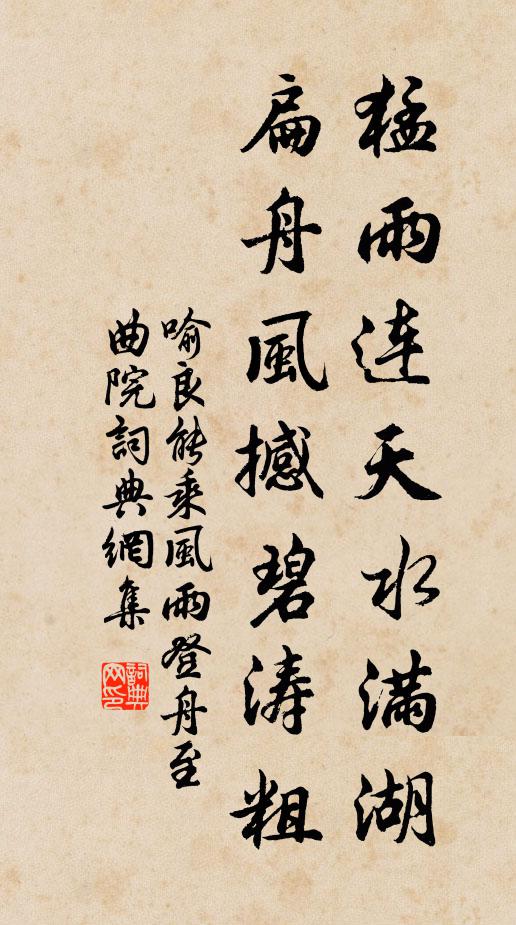 猛雨連天水滿湖
扁舟風撼碧濤粗
喻良能乘風雨登舟至
曲院詞典網集
詞典網印